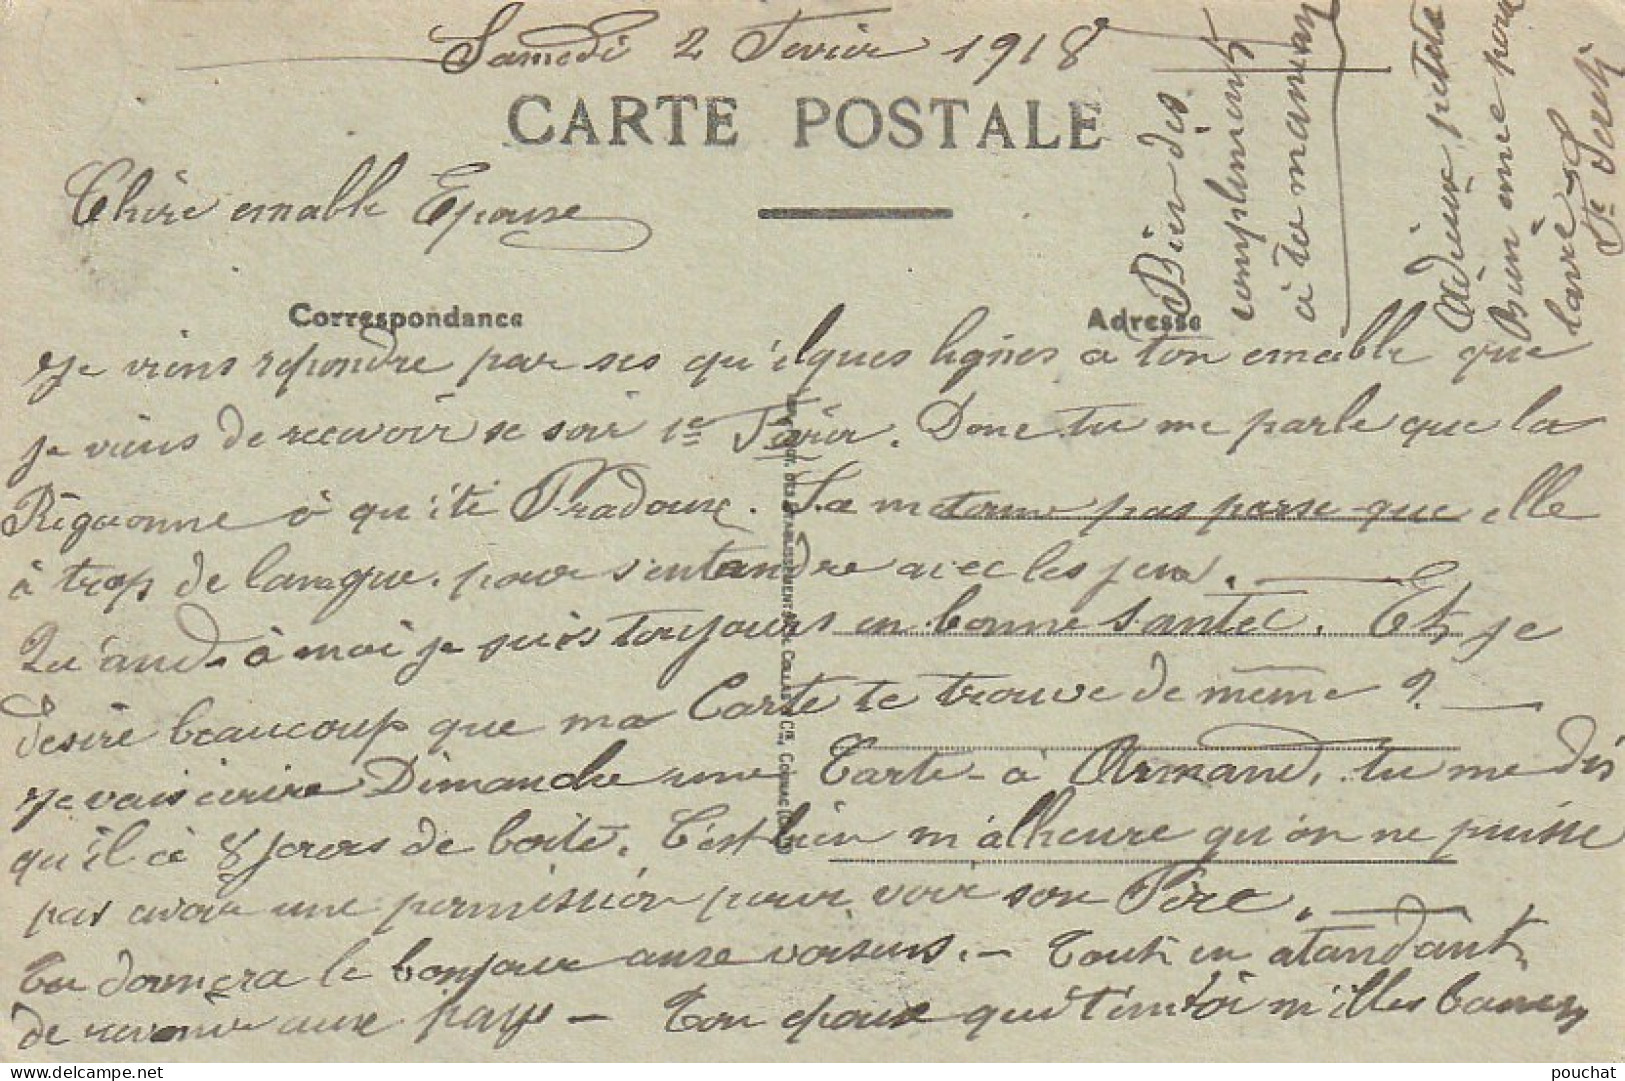 Samedi 2 Fevier 1918
CARTE POSTALE
Chère emable Epouse
Correspondance
Adresse
Je viens repondre par ses qu'elques lignes a ton emable que
je viens de recevoir se soir 1e Févier. Donc tu me parle que la
Riguonne à qu'ité Pradoux. Sa m etonne pas parse que elle
à trop de langue. pour s'entandre avec les jens.
Qu'and à moi je suis toujours en bonne santé. Et je
desire beaucoup que ma Carte te trouve de même ?
Je vais écrire Dimanche une Carte à Armand, tu me dis
qu'il à 8 jours de boité. C'est bien m'alheure qu'on ne puisse
pas avoir une permission pour voir son Père.
Tu donnera le bonjour aux voisins. - Tout en atandant
de revenir aux pays - Ton epoux qui t'em toi m'illes baisers
Bien des
complements
à ta maman
Adieux petite
Bonne année pour